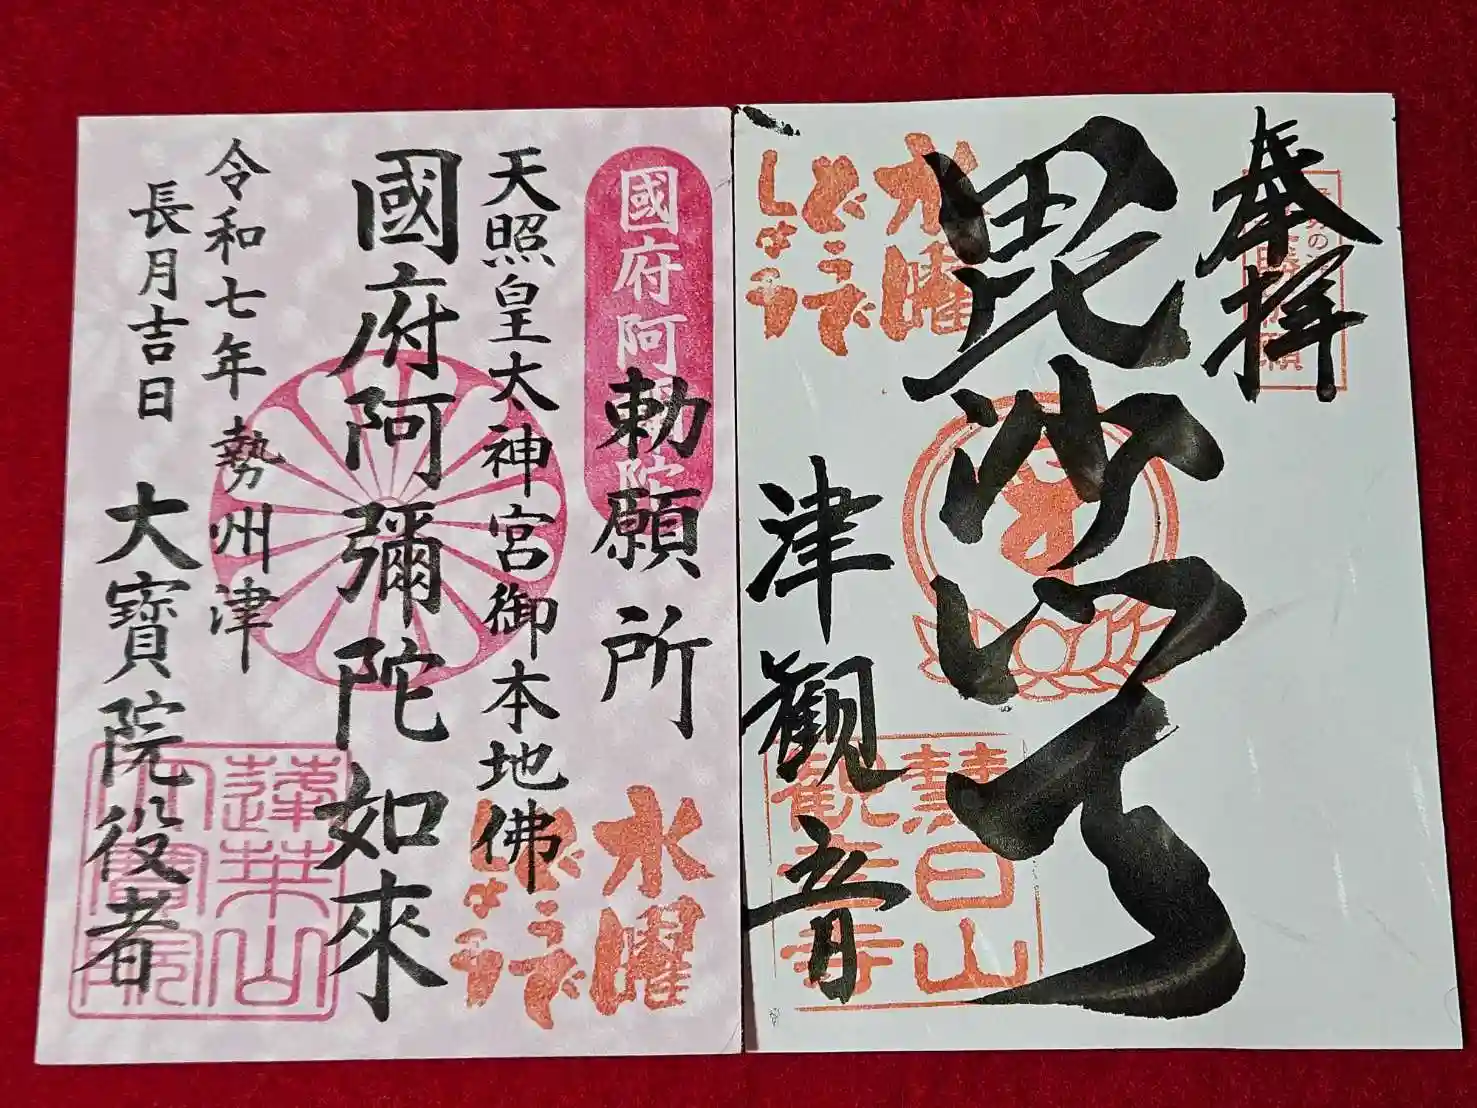 奉拝
毘沙門天
津観音
水曜
どうで
しょう
慧日山
観音寺
國府阿彌陀
勅願所
天照皇大神宮御本地佛
國府阿彌陀如來
令和七年 勢州津
長月吉日 大寶院役者
水曜
どうで
しょう
蓮華山
大寶院